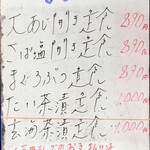 大あじ開き定食 890円
さば塩開き定食 890円
まぐろぶつ定食 890円
たい茶漬定食 1.000円
玄海茶漬定食 1.000円